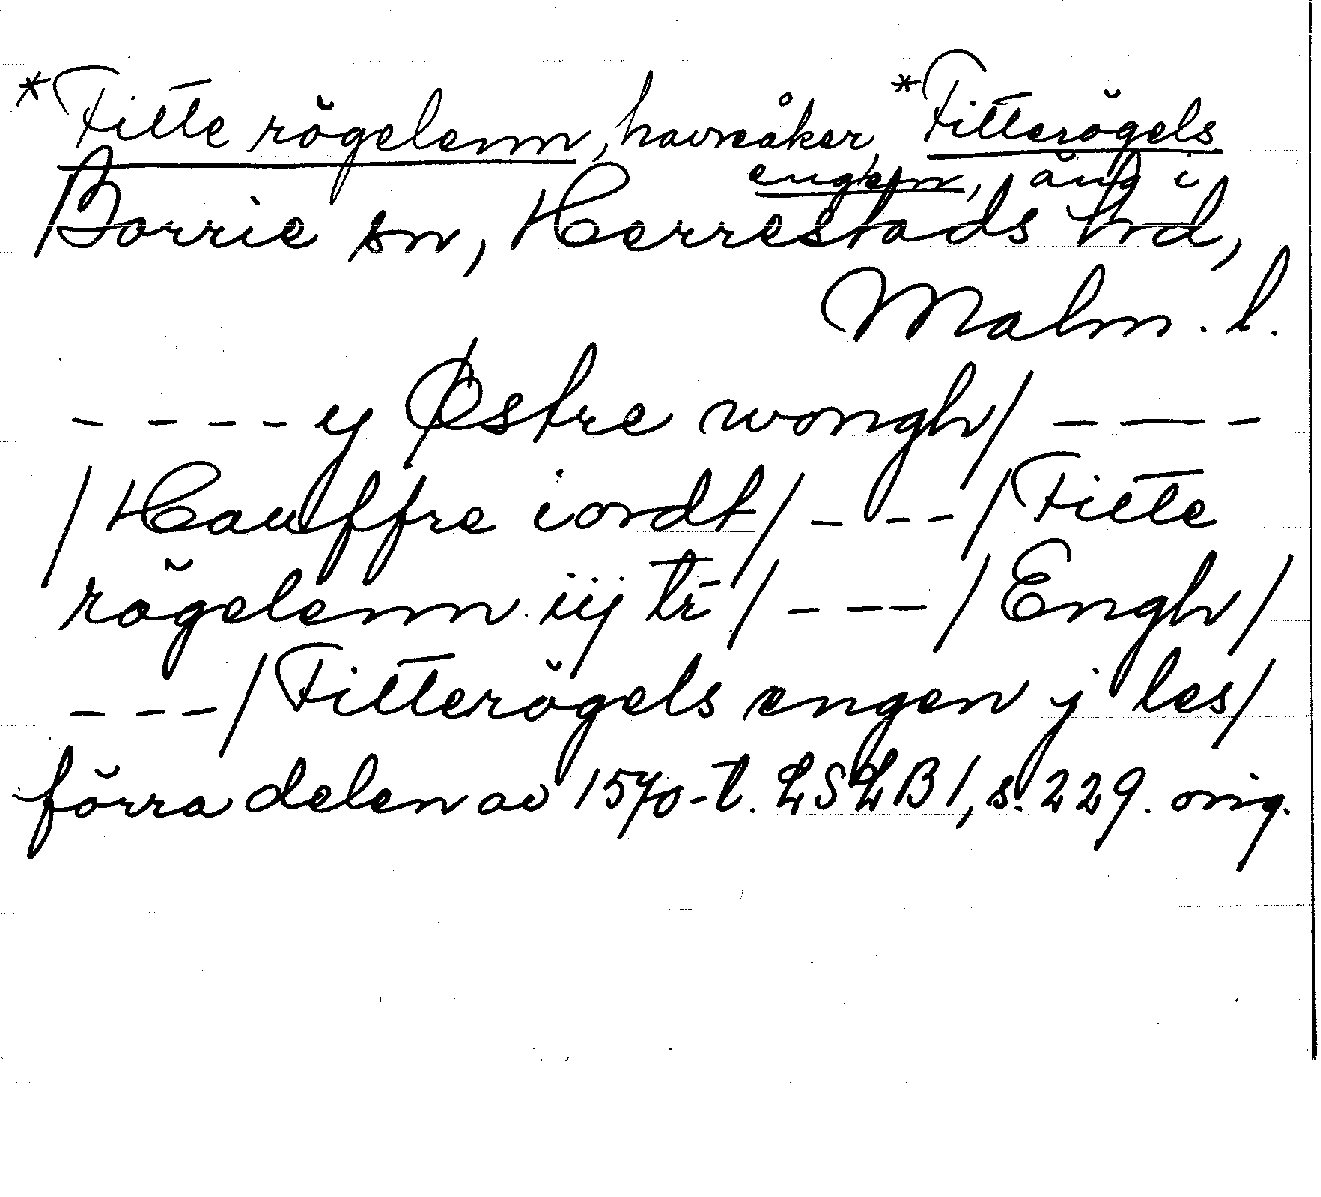 *Fitte rögelenn, havreåker, *Fitterögels
engen, äng i
Borrie sn, Herrestads hd,
Malm. l.
- - - - y Østre wongh/ - - -
/Hauffre iordt/ - - - /Fitte
rögelenn iij tr̄/ - - - /Engh/
- - - /Fitterögels engen j les/
förra delen av 1570-t. LSLB 1, s. 229. orig.